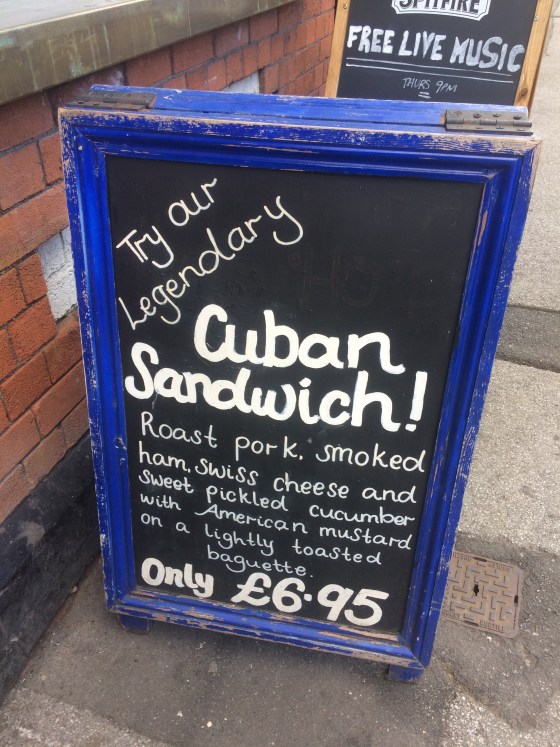 SPITFIRE
FREE LIVE MUSIC
THURS 9PM
Try our
Legendary
Cuban
Sandwich!
Roast pork, smoked
ham, swiss cheese and
sweet pickled cucumber
with American mustard
on a lightly toasted
baguette.
Only £6.95